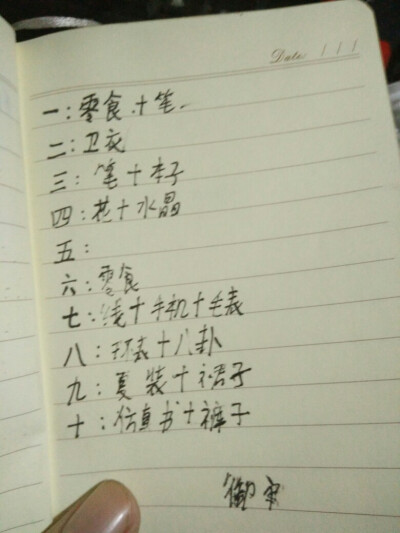 Date / / /
一：零食＋笔
二：卫衣
三：笔＋本子
四：花＋水晶
五：
六：零食
七：线＋手机＋毛
八：＋八卦
九：夏装＋裙子
十：仿真书＋裤子